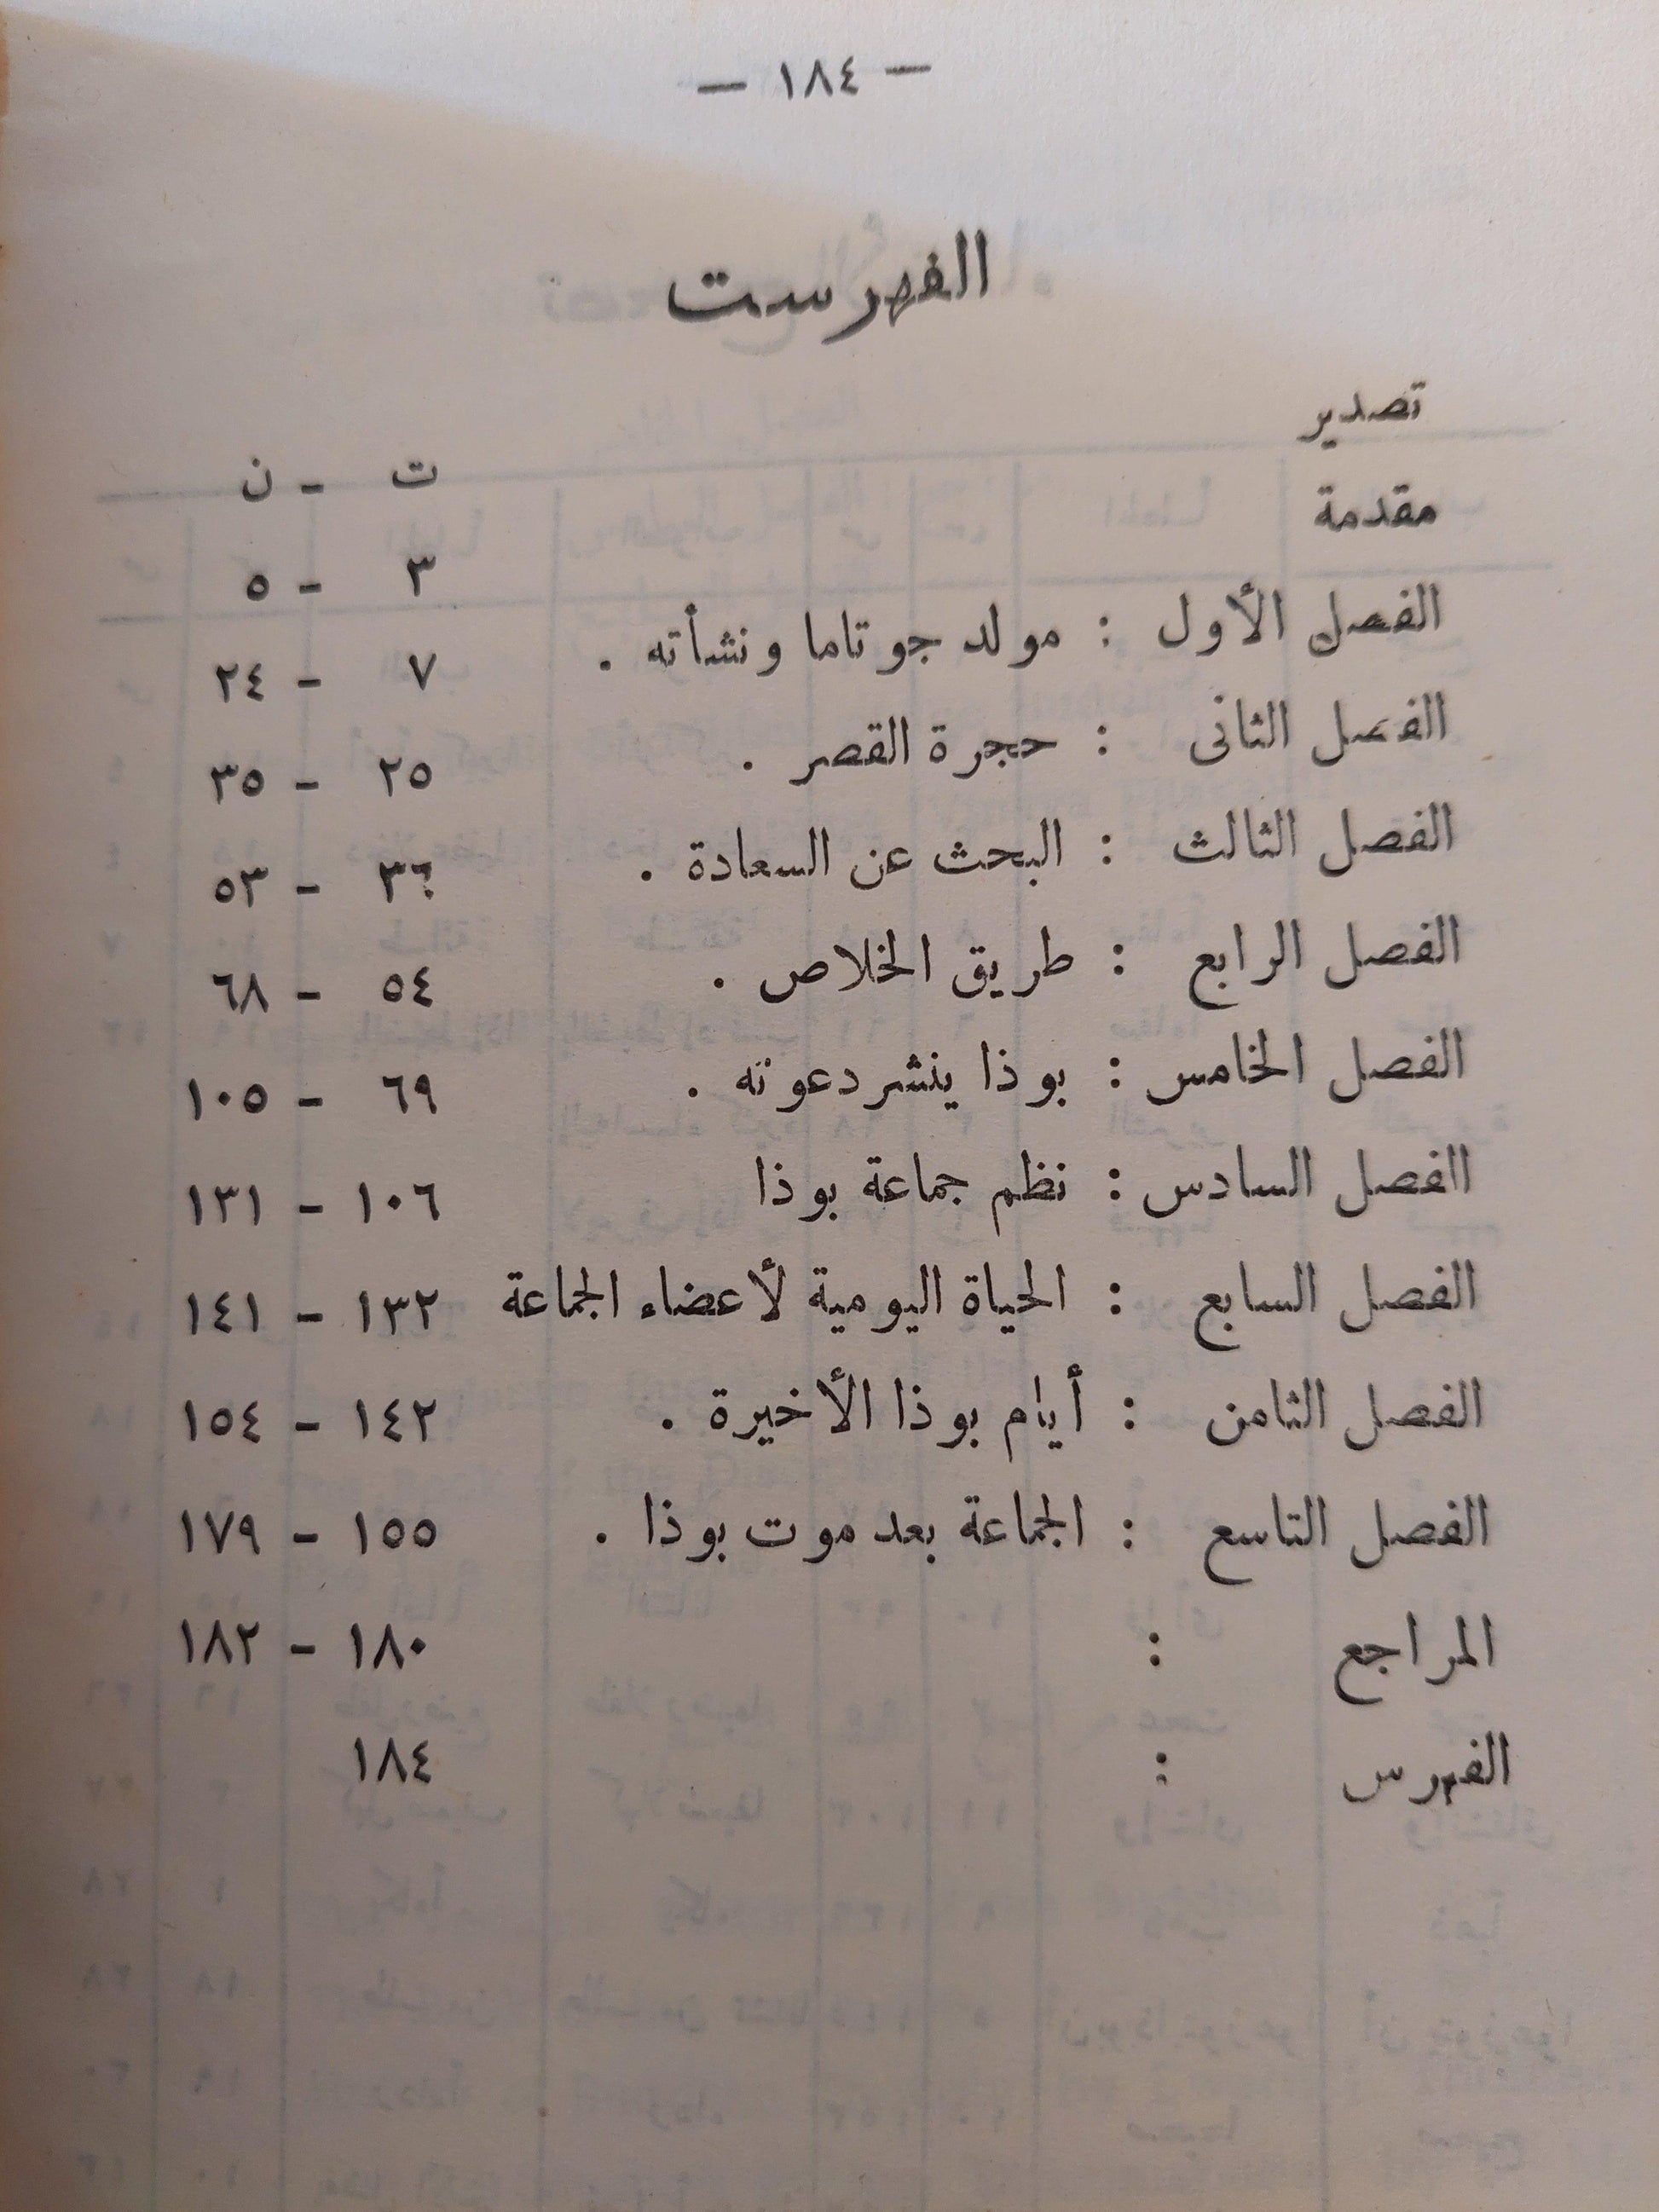 — ١٨٤ —
الفهرست
تصدير ت - ن
مقدمة ٣ - ٥
الفصل الأول : مولد جوتاما ونشأته . ٧ - ٢٤
الفصل الثانى : حجرة القصر . ٢٥ - ٣٥
الفصل الثالث : البحث عن السعادة . ٣٦ - ٥٣
الفصل الرابع : طريق الخلاص . ٥٤ - ٦٨
الفصل الخامس : بوذا ينشر دعوته . ٦٩ - ١٠٥
الفصل السادس : نظم جماعة بوذا ١٠٦ - ١٣١
الفصل السابع : الحياة اليومية لأعضاء الجماعة ١٣٢ - ١٤١
الفصل الثامن : أيام بوذا الأخيرة . ١٤٢ - ١٥٤
الفصل التاسع : الجماعة بعد موت بوذا . ١٥٥ - ١٧٩
المراجع : ١٨٠ - ١٨٢
الفهرس : ١٨٤